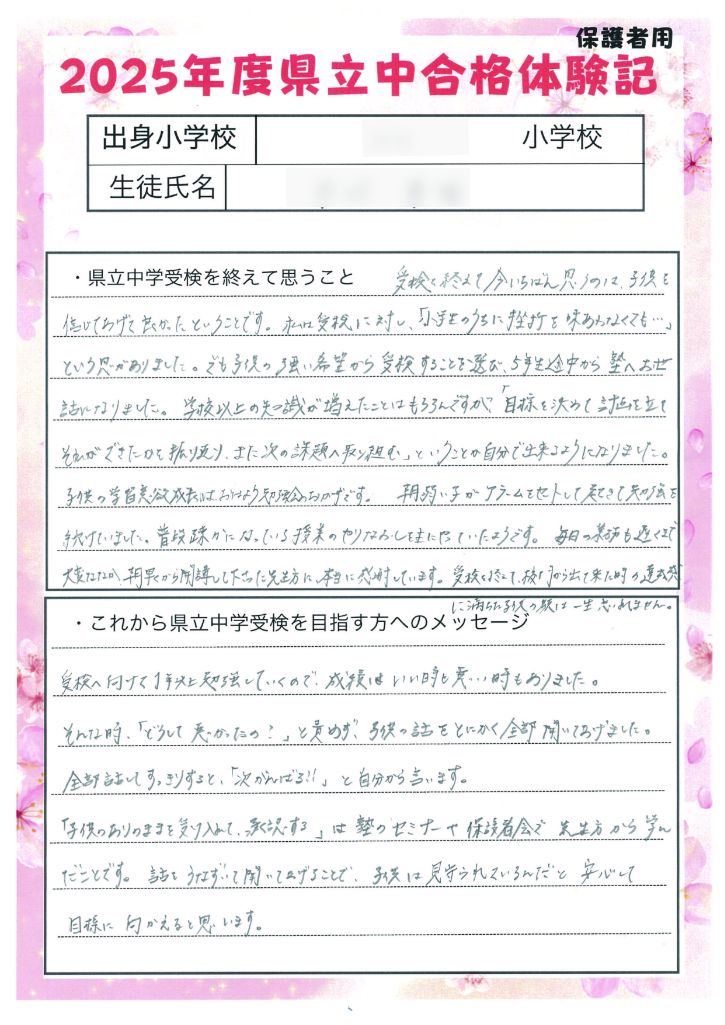 保護者用
2025年度県立中合格体験記
出身小学校 小学校
生徒氏名
・県立中学受検を終えて思うこと 受検を終えて今いちばん思うのは、子供を
信じてあげて良かったということです。私は受検に対し、「小学生のうちに挫折を味あわなくても…」
という思いがありました。でも子供の強い希望から受検することを選び、5年生途中から塾へお世
話になりました。学校以上の知識が増えたことはもちろんですが、「目標を決めて計画を立て
それができたかを振り返り、また次の課題へ取り組む」ということが自分で出来るようになりました。
子供の学習意欲成長はおはよう勉強会のおかげです。 朝弱い子がアラームをセットして起きてきて勉強を
続けていました。普段疎かになっている授業のやりなおしを主にやっていたようです。毎日の業務も遅くまで
大変ななか、朝早くから開講して下さった先生方に本当に感謝しています。受検を終えて、検査から出て来た時の達成感
に満ちた子供の顔は一生忘れません。
・これから県立中学受検を目指す方へのメッセージ
受検へ向けて1年以上勉強していくので、成績はいい時も悪い時もありました。
そんな時、「どうして悪かったの?」と責めず、子供の話をとにかく全部聞いてあげました。
全部話してすっきりすると、「次がんばる!!」と自分から言います。
「子供のありのままを受け入れて、承認する」は塾のセミナーや保護者会で先生方から学ん
だことです。話をうなずいて聞いてあげることで、子供は見守られているんだと安心して
目標に向かえると思います。